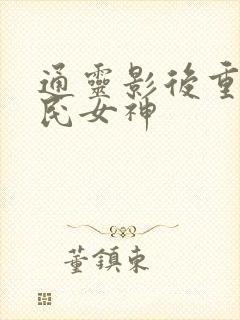 通靈影後重
民女神
董鎮東